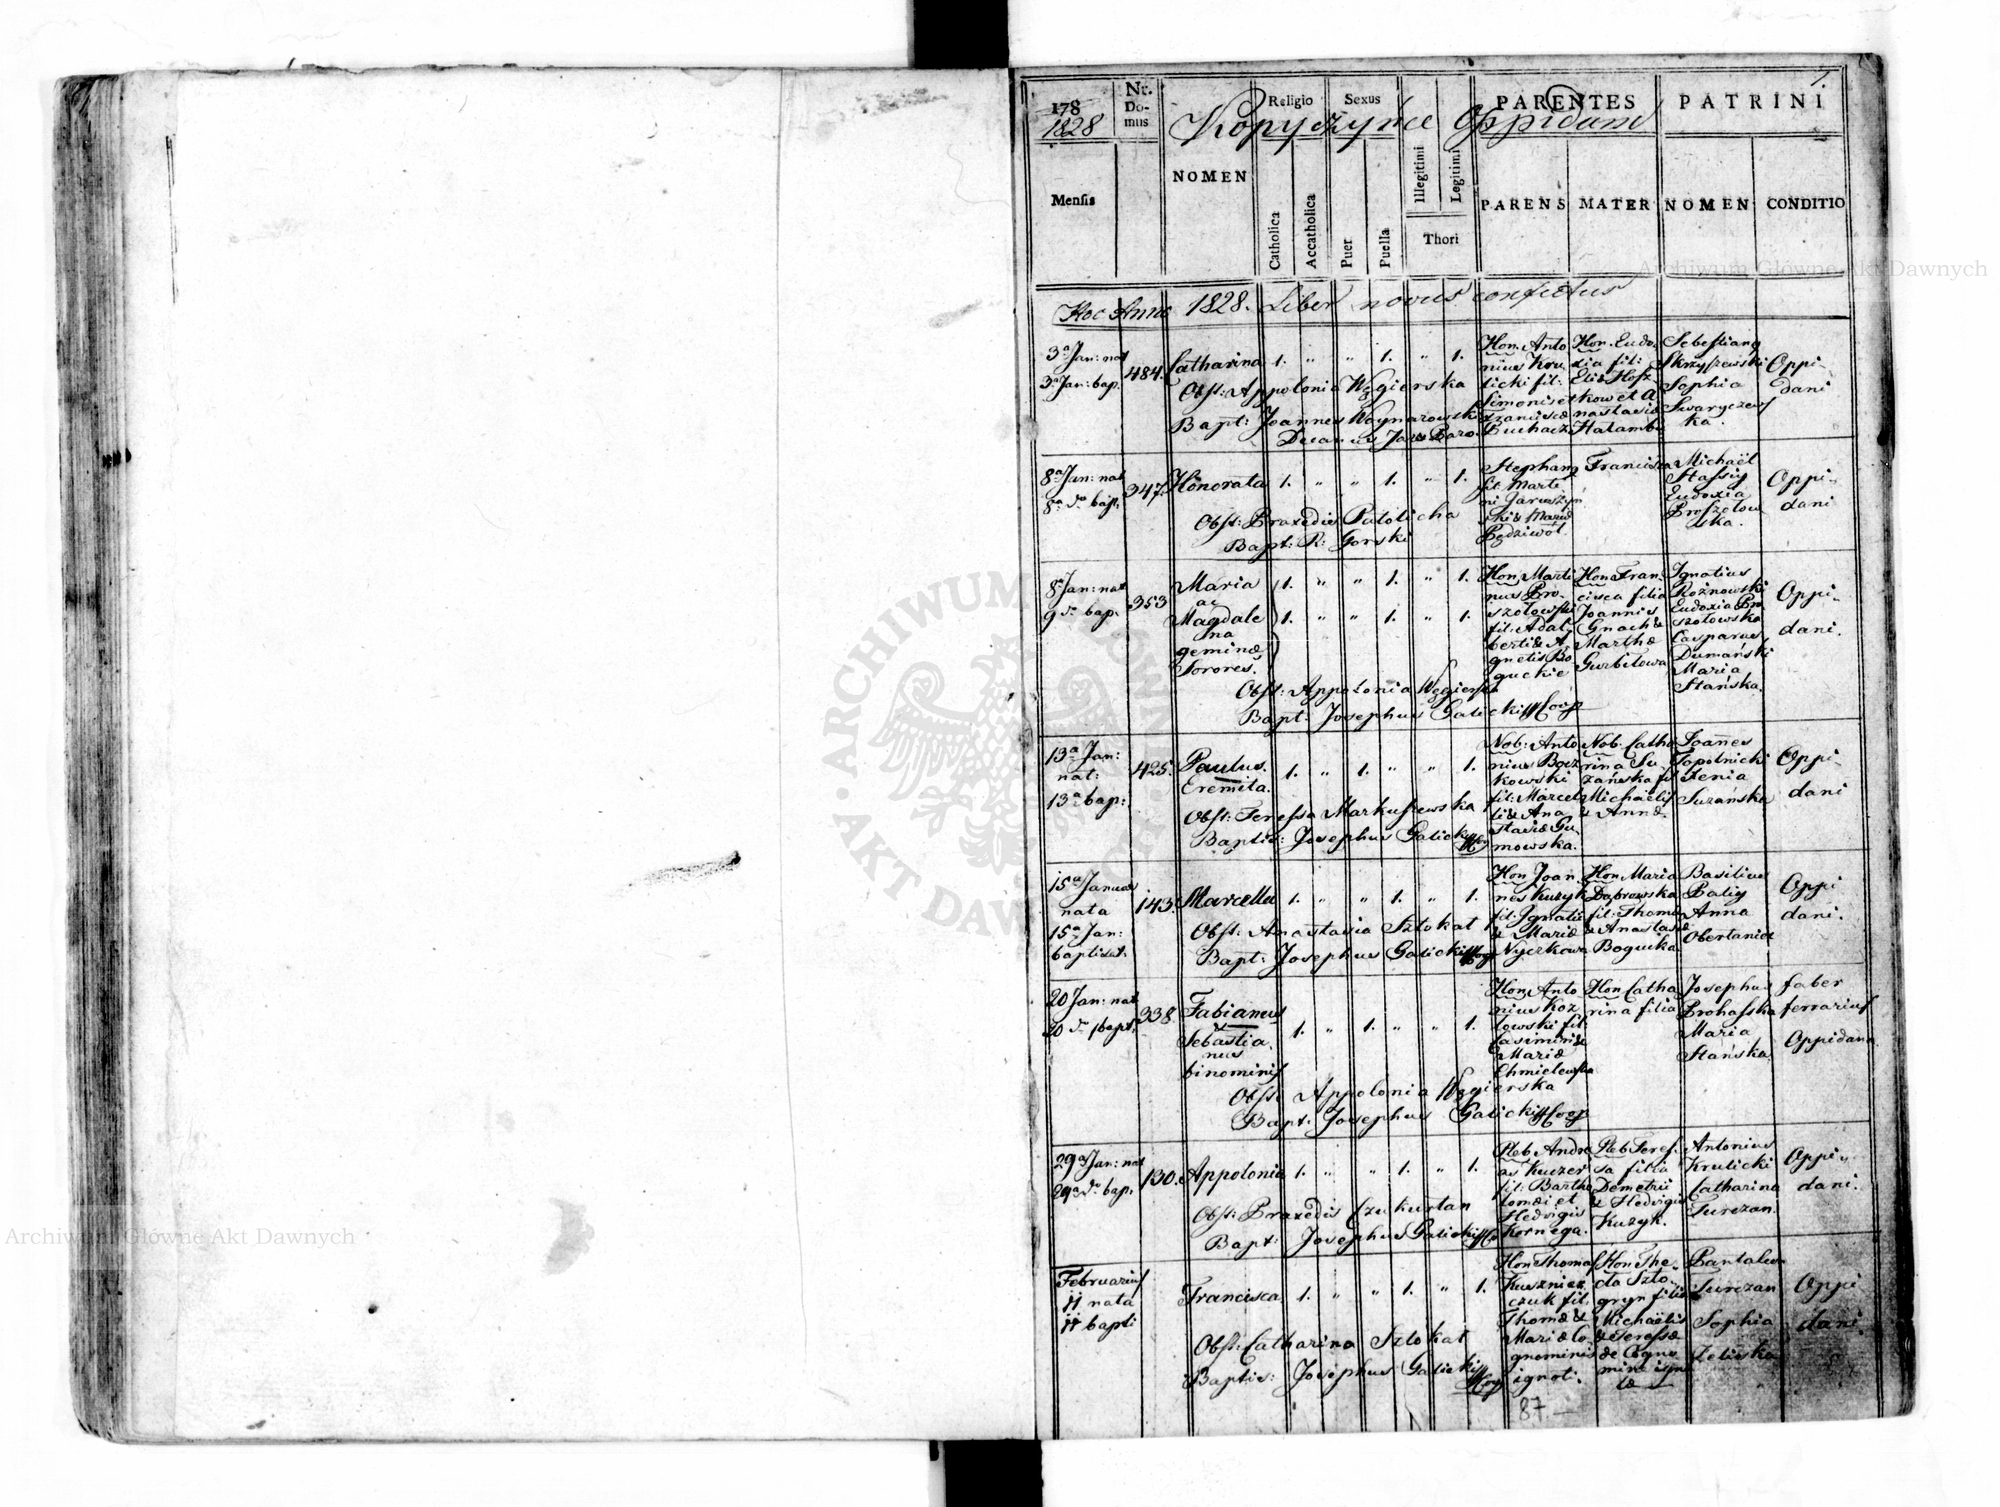 1
178
1828
Nr. Domus
Religio
Sexus
PARENTES
PATRINI
Kopyczyńce Oppidum
Mensis
NOMEN
Catholica
Accatholica
Puer
Puella
Illegitimi
Legitimi
Thori
PARENS
MATER
NOMEN
CONDITIO
Hoc Anno 1828. Liber novus confectus
3ª Jan: nat
3ª Jan: bap.
484.
Catharina
1. " " 1. " 1.
Obst: Appolonia Węgierska
Bapt: Joannes Woynarowski
Decanus
Hon. Anto
nius Kru
licki fil:
Simonis et
Franciscæ
Buchacz
Hon. Eudo
xia fil:
kow et A
nastasiæ
Sebestianq
Skrzyszewski
Sophia
Swaryczews
ka.
Oppi-
dani
8ª Jan: nat
8ª dº bap.
347.
Honorata
1. " " 1. " 1.
Obst: Praxedis
Bapt: R: Gorski
Stephanq
fil: Marti
ni Jaruszyń
ski & Mariæ
Francisca
Michaël
Stassiy
Eudoxia
Oppi-
dani
8ª Jan: nat
9 dº bap.
353
Maria
ac
Magdale
na
geminæ
Sorores.
1. " " 1. " 1.
1. " " 1. " 1.
Obst: Appolonia Węgierska
Bapt: Josephus Galicki Coop
Hon Marti
nus Bro
szołowski
fil: Adal
berti & A
gnetis Bo
guckie
Hon Fran
cisca filia
Joannis
Gnach &
Marthæ
Gurbitowa
Ignatius
Rożnowski
Eudoxia Bro
szołowska
Casparus
Dumański
Maria
Stańska.
Oppi-
dani.
13ª Jan:
nat:
13ª bap:
425.
Paulus.
Eremita.
1. " 1. " " 1.
Obst: Teressa Markuszewska
Baptis: Josephus Galicki
Nob: Anto
nius Bącz
kowski
fil: Marcel
li & Ana
stasiæ Gu
mowska.
Nob: Catha
rina Su
zańska fil
Michaëlis
& Annæ.
Joañes
Topolnicki
Xenia
Suzańska
Oppi-
dani
15ª Januar
nata
15ª Jan:
baptisat:
143.
Marcella
1. " " 1. " 1.
Obst: Anastasia Sztokat
Bapt: Josephus Galicki
Hon Joan
nes Kuzyk
fil: Ignatii
& Mariæ
Nyczkowa
Hon Maria
Dąbrowska
fil: Thomæ
& Anastasiæ
Bogucka
Basilius
Baliy
Anna
Oppi
dani.
20 Jan: nat
20 dº bapt:
338.
Fabianus
&
Sebastia
nus
binominis
1. " 1. " " 1.
Obst: Appolonia Węgierska
Bapt: Josephus Galicki Coop
Hon Anto
nius Koz
łowski fil:
Casimiri &
Mariæ
Chmielewska
Hon Catha
rina filia
Josephus
Prohaska
Maria
Stańska
faber
ferrarius
Oppidana
29ª Jan: nat
29ª dº bap.
130.
Appolonia
1. " " 1. " 1.
Obst: Praxedis Czukurtan
Bapt: Josephus Galicki
Pleb Andre
as Kuczer
fil: Bartho
lomæi et
Hedvigis
Kornega.
Pleb Teres
sa filia
Demetrii
& Hedvigis
Kuzyk.
Antonius
Krulicki
Catharina
Turczan.
Oppi-
dani.
Februarius
11 nata
11 bapti
Francisca
1. " " 1. " 1.
Obst: Catharina Sztokat
Baptis: Josephus Galicki
Hon Thomas
Kuszniez
czuk fil:
Thomæ &
Mariæ Co
gnominis
ignoti.
Hon The
cla Szto
gryn filia
Michaëlis
& Teressæ
de Cogno
mine igno
tæ
Pantaleo
Turczan
Sophia
Oppi
dani.
87 —
Archiwum Główne Akt Dawnych
Archiwum Główne Akt Dawnych
ARCHIWUM GŁÓWNE AKT DAWNYCH